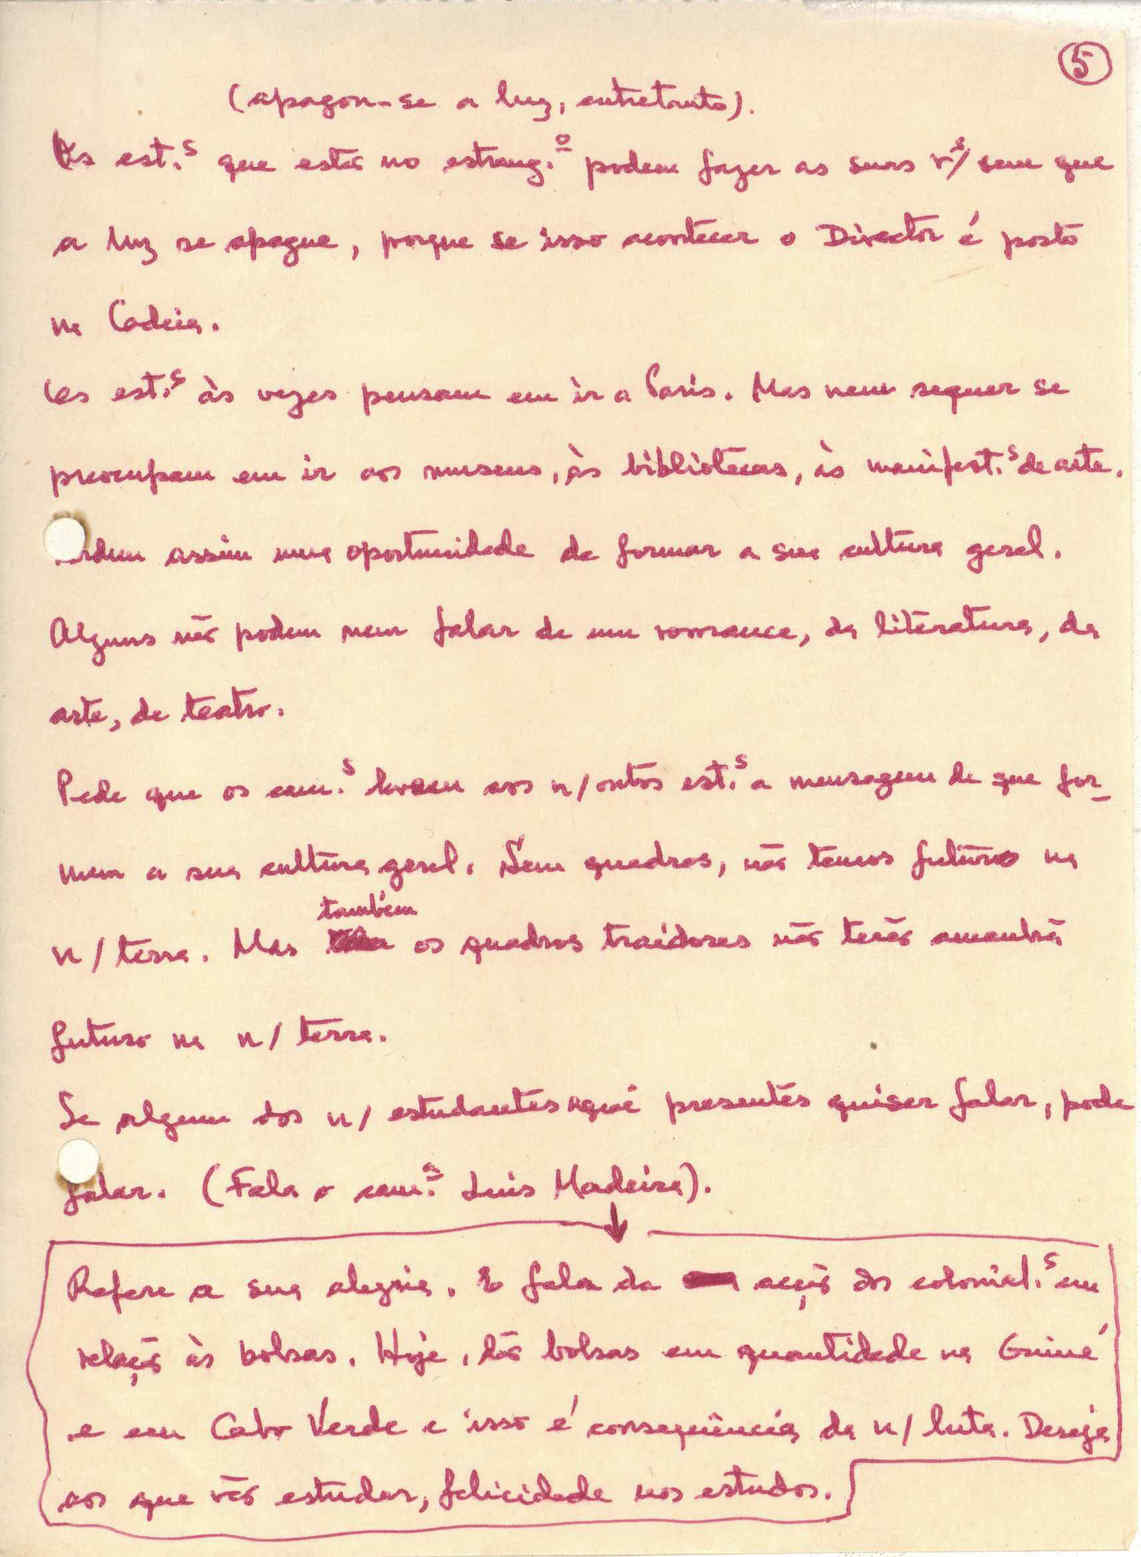 5
(apagou-se a luz, entretanto).
Os est.s que estão no estrang.º podem fazer as suas r.s/ sem que
a luz se apague, porque se isso acontecer o Director é posto
na Cadeia.
Os est.s às vezes pensam em ir a Paris. Mas nem sequer se
preocupam em ir aos museus, às bibliotecas, às manifest.s de arte.
rdem assim uma oportunidade de formar a sua cultura geral.
Alguns não podem nem falar de um romance, da literatura, da
arte, de teatro.
Pede que os cam.s levem aos n/ outros est.s a mensagem de que for-
mem a sua cultura geral. Sem quadros, não temos futuro na
n/ terra. Mas também os quadros traidores não terão amanhã
futuro na n/ terra.
Se algum dos n/ estudantes aqui presentes quiser falar, pode
falar. (Fala o cam.a Luís Madeira).
Refere a sua alegria. E fala da acção dos colonial.s em
relação às bolsas. Hoje, dão bolsas em quantidade na Guiné
e em Cabo Verde e isso é consequência da n/ luta. Deseja
aos que vão estudar, felicidade nos estudos.